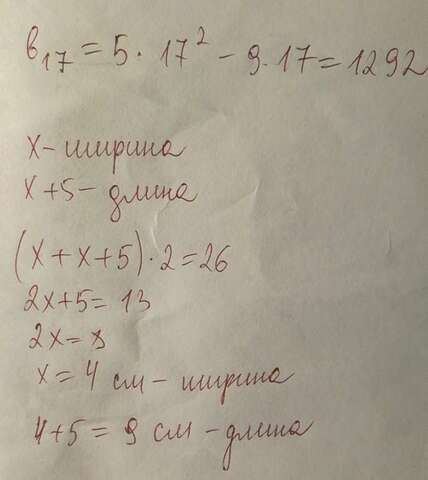 в₁₇ = 5 · 17² - 9 · 17 = 1292
x - ширина
x + 5 - длина
(x + x + 5) · 2 = 26
2x + 5 = 13
2x = 8
x = 4 см - ширина
4 + 5 = 9 см - длина